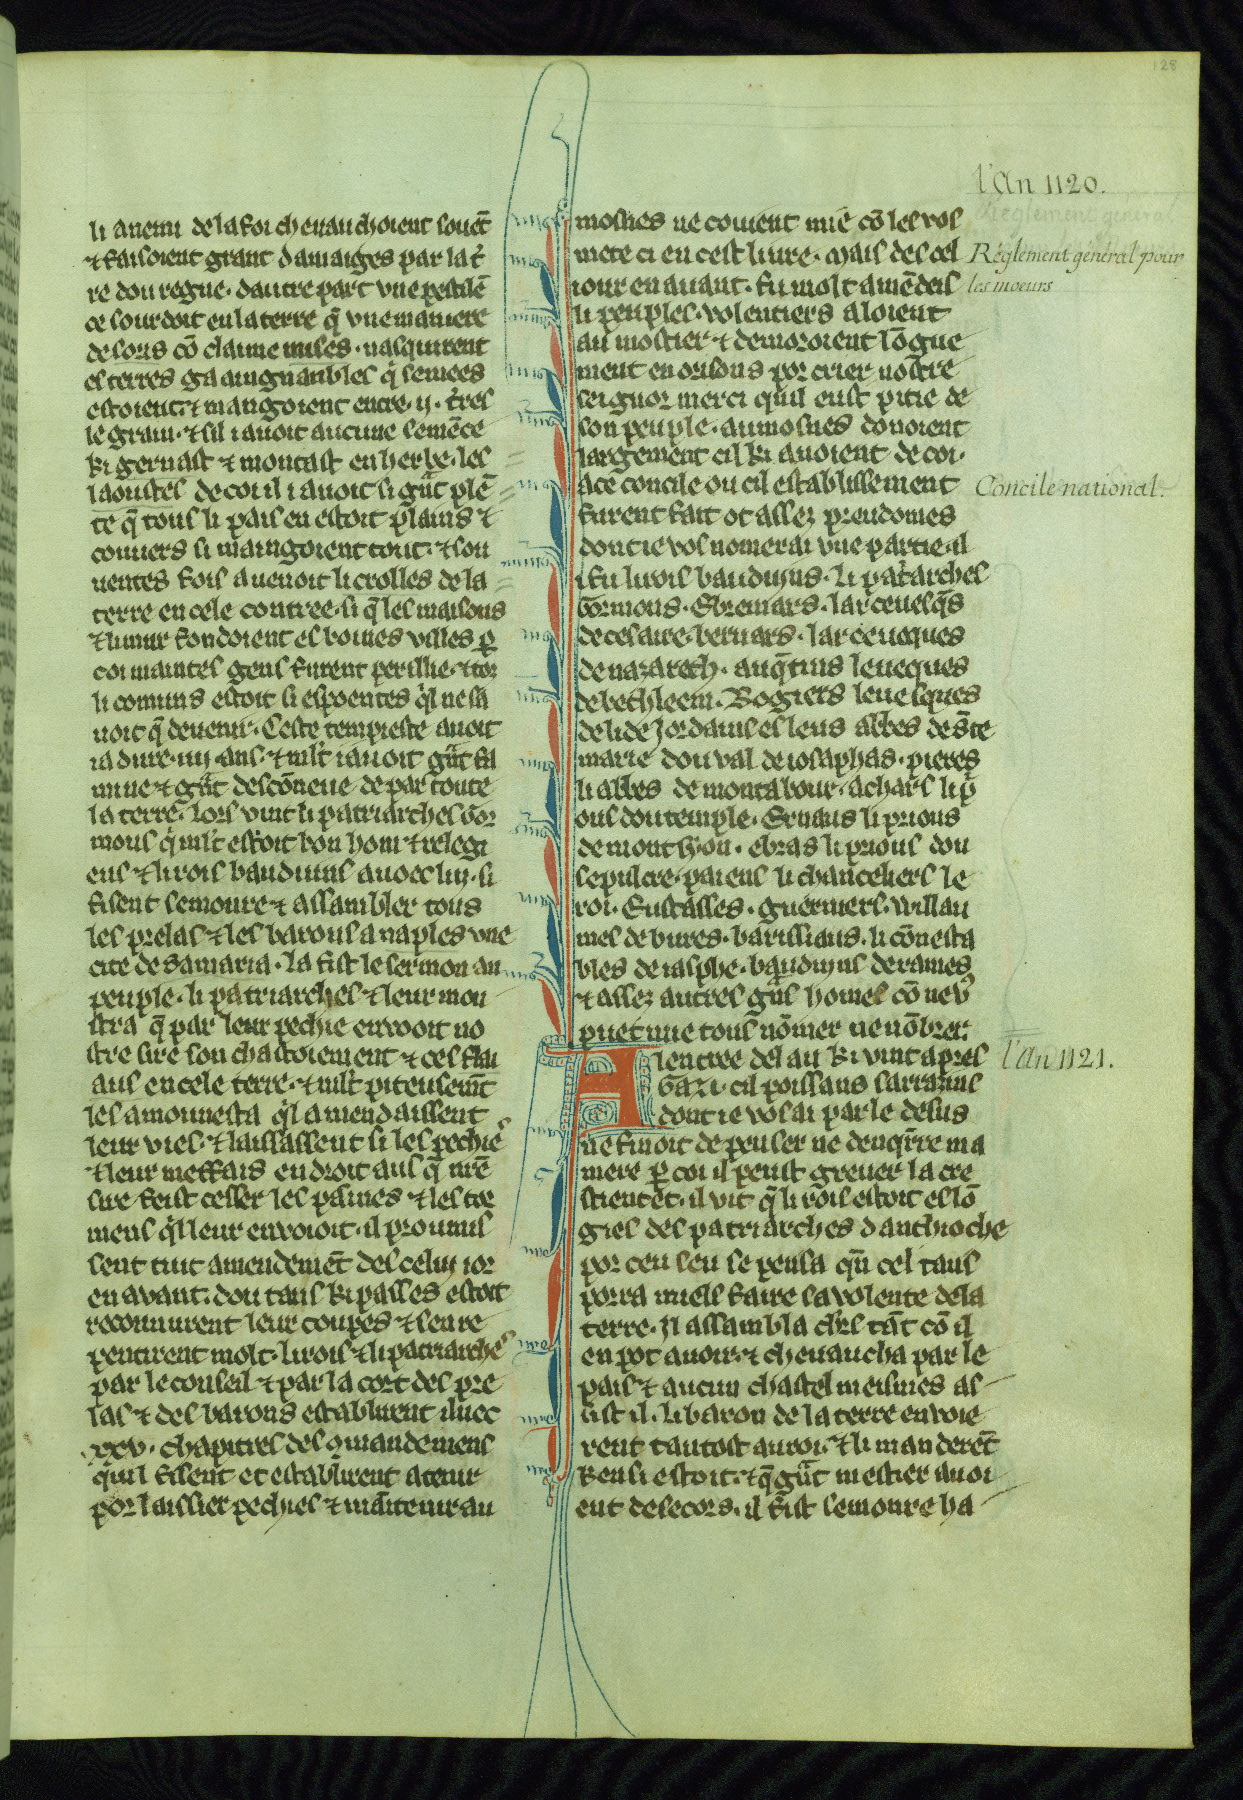 li anemi de la foi chevauchoient souēt
⁊ faisoient grant damaiges par la t̄
re dou regne. dautre part vne pestilē
ce sourdoit en la terre q̄ vne maniere
de soris cō claime mises. nasquirent
es terres gaaingnaubles q̄ semees
estoient. ⁊ mangoient entre .ij. t̄res
le grain. ⁊ sil i auoit aucune semēce
ki gernast ⁊ montast en herbe. les
laoustes de coi il i auoit si gn̄t plē
te q̄ tous li pais en estoit plains ⁊
couuers si maingoient tout. ⁊ sou
uentes fois auenoit li crolles de la
terre en cele contree. si q̄ les maisons
⁊ li mur fondoient es boines villes p̲
coi maintes gens furent perillie. ⁊ toz
li comuns estoit si espoentes q̄l ne sa
uoit q̄ deuenir. Ceste tempeste auoit
ia dure .iiij. ans. ⁊ ml̄t i auoit gn̄t fa
mine ⁊ gn̄t descōneue de par toute
la terre. lors vint li patriarches Gor
mons q̄ ml̄t estoit bon hom ⁊ relegi
eus ⁊ li rois bauduins auoec lui. si
fisent semonre ⁊ assambler tous
les prelas ⁊ les barons a naples vne
cite de Samaria. la fist le sermon au
peuple. li patriarches ⁊ leur mon
stra q̄ par leur pechie enuoit no
stre sire son chastoiement ⁊ ces flai
aus en cele terre. ⁊ ml̄t piteusem̄t
les amonnesta q̄l amendaissent
leur vies. ⁊ laissassent si les pechies
⁊ leur meffais en droit aus q̄ nrē
sire feist cesser les paines ⁊ les tor
mens q̄l leur enuoioit. il proumis
sent tuit amendemēt des celui ior
en avant. dou tans ki passes estoit
reconnurent leur coupes ⁊ sen re
pentirent molt. li rois ⁊ li patriarches
par le conseil ⁊ par la cort des pre
las ⁊ des barons establirent iluec
.xxv. chapitres des 9mandemens
quil fisent et establirent a tenir
por laissier pechies ⁊ maintenir au
mosnes ne couient mie cō les vos
mete ci en cest liure. Mais des cel
iour en auant. fu molt amēdeis
li peuples. volentiers aloient
au mostier ⁊ demoroient lōgue
ment en orisons por crier nostre
seignor merci quil eust pitie de
son peuple. aumosnes donoient
largement cil ki auoient de coi.
a ce concile ou cil establissement
furent fait ot assez preudomes
dont ie vos nomerai vne partie. il
i fu li rois bauduins. li pat̄arches
Gormons. Ebremars. larceuesq̄s
de cesaire. bernars. larceueques
de nazareth. auq̄tins leuecques
de bethleem. Rogiers leuesques
de lide Jordains esleus abbes de s̄te
marie dou val de iosaphas. pieres
li abbes de montabour. achars li p̄
ous dou temple. Ernaus li prious
de mont syon. ebras li prious dou
sepulcre. paiens li chanceliers le
roi. Eustasses. guerniers. willau
mes de bures. barissans. li cōnesta
bles de iasphe. bauduins de rames
⁊ assez autres gn̄s homes cō ne v̄
puet mie tous nōmer ne nōbrer.
A lentree del an ki vint apres
Gazi. cil poissans sarrazins
dont ie vos ai parle desus
ne finoit de penser ne denq̄rre ma
niere p̲ coi il peust greuer la cre
stientēt. il vit q̄ li rois estoit eslō
gies des patriarches danthioche
por ceu seu se pensa qn̄ cel tans
porra miels faire sa volente de la
terre. Il assambla ch̄rs tāt cō il
en pot auoir. ⁊ cheuaucha par le
pais ⁊ aucun chastel meismes as
sist il. li baron de la terre enuoie
rent tantost au roi. ⁊ li manderēt
kensi estoit. ⁊ q̄ gn̄t mestier auoi
ent de secors. il fist semonre ha
128
l'An 1120.
Règlement général pour
les moeurs
Concile national.
l'An 1121.